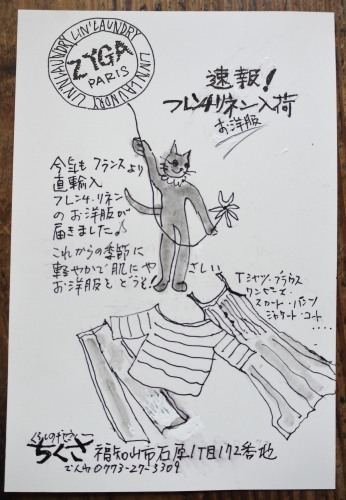 LIN'N'LAUNDRY LIN'N'LAUNDRY LIN'N'LAUNDRY
ZYGA
PARIS
速報!
フレンチリネン入荷
お洋服
今年も フランスより
直輸入
フレンチ・リネン
のお洋服が
届きました♪
これからの季節に
軽やかで肌にやさしい
お洋服を どうぞ!
Tシャツ・ブラウス
ワンピース・
スカート・パンツ
ジャケット・コート
・・・・・
くらしのギャラリー
ちくさ 福知山市石原1丁目172番地
でんわ 0773-27-5309